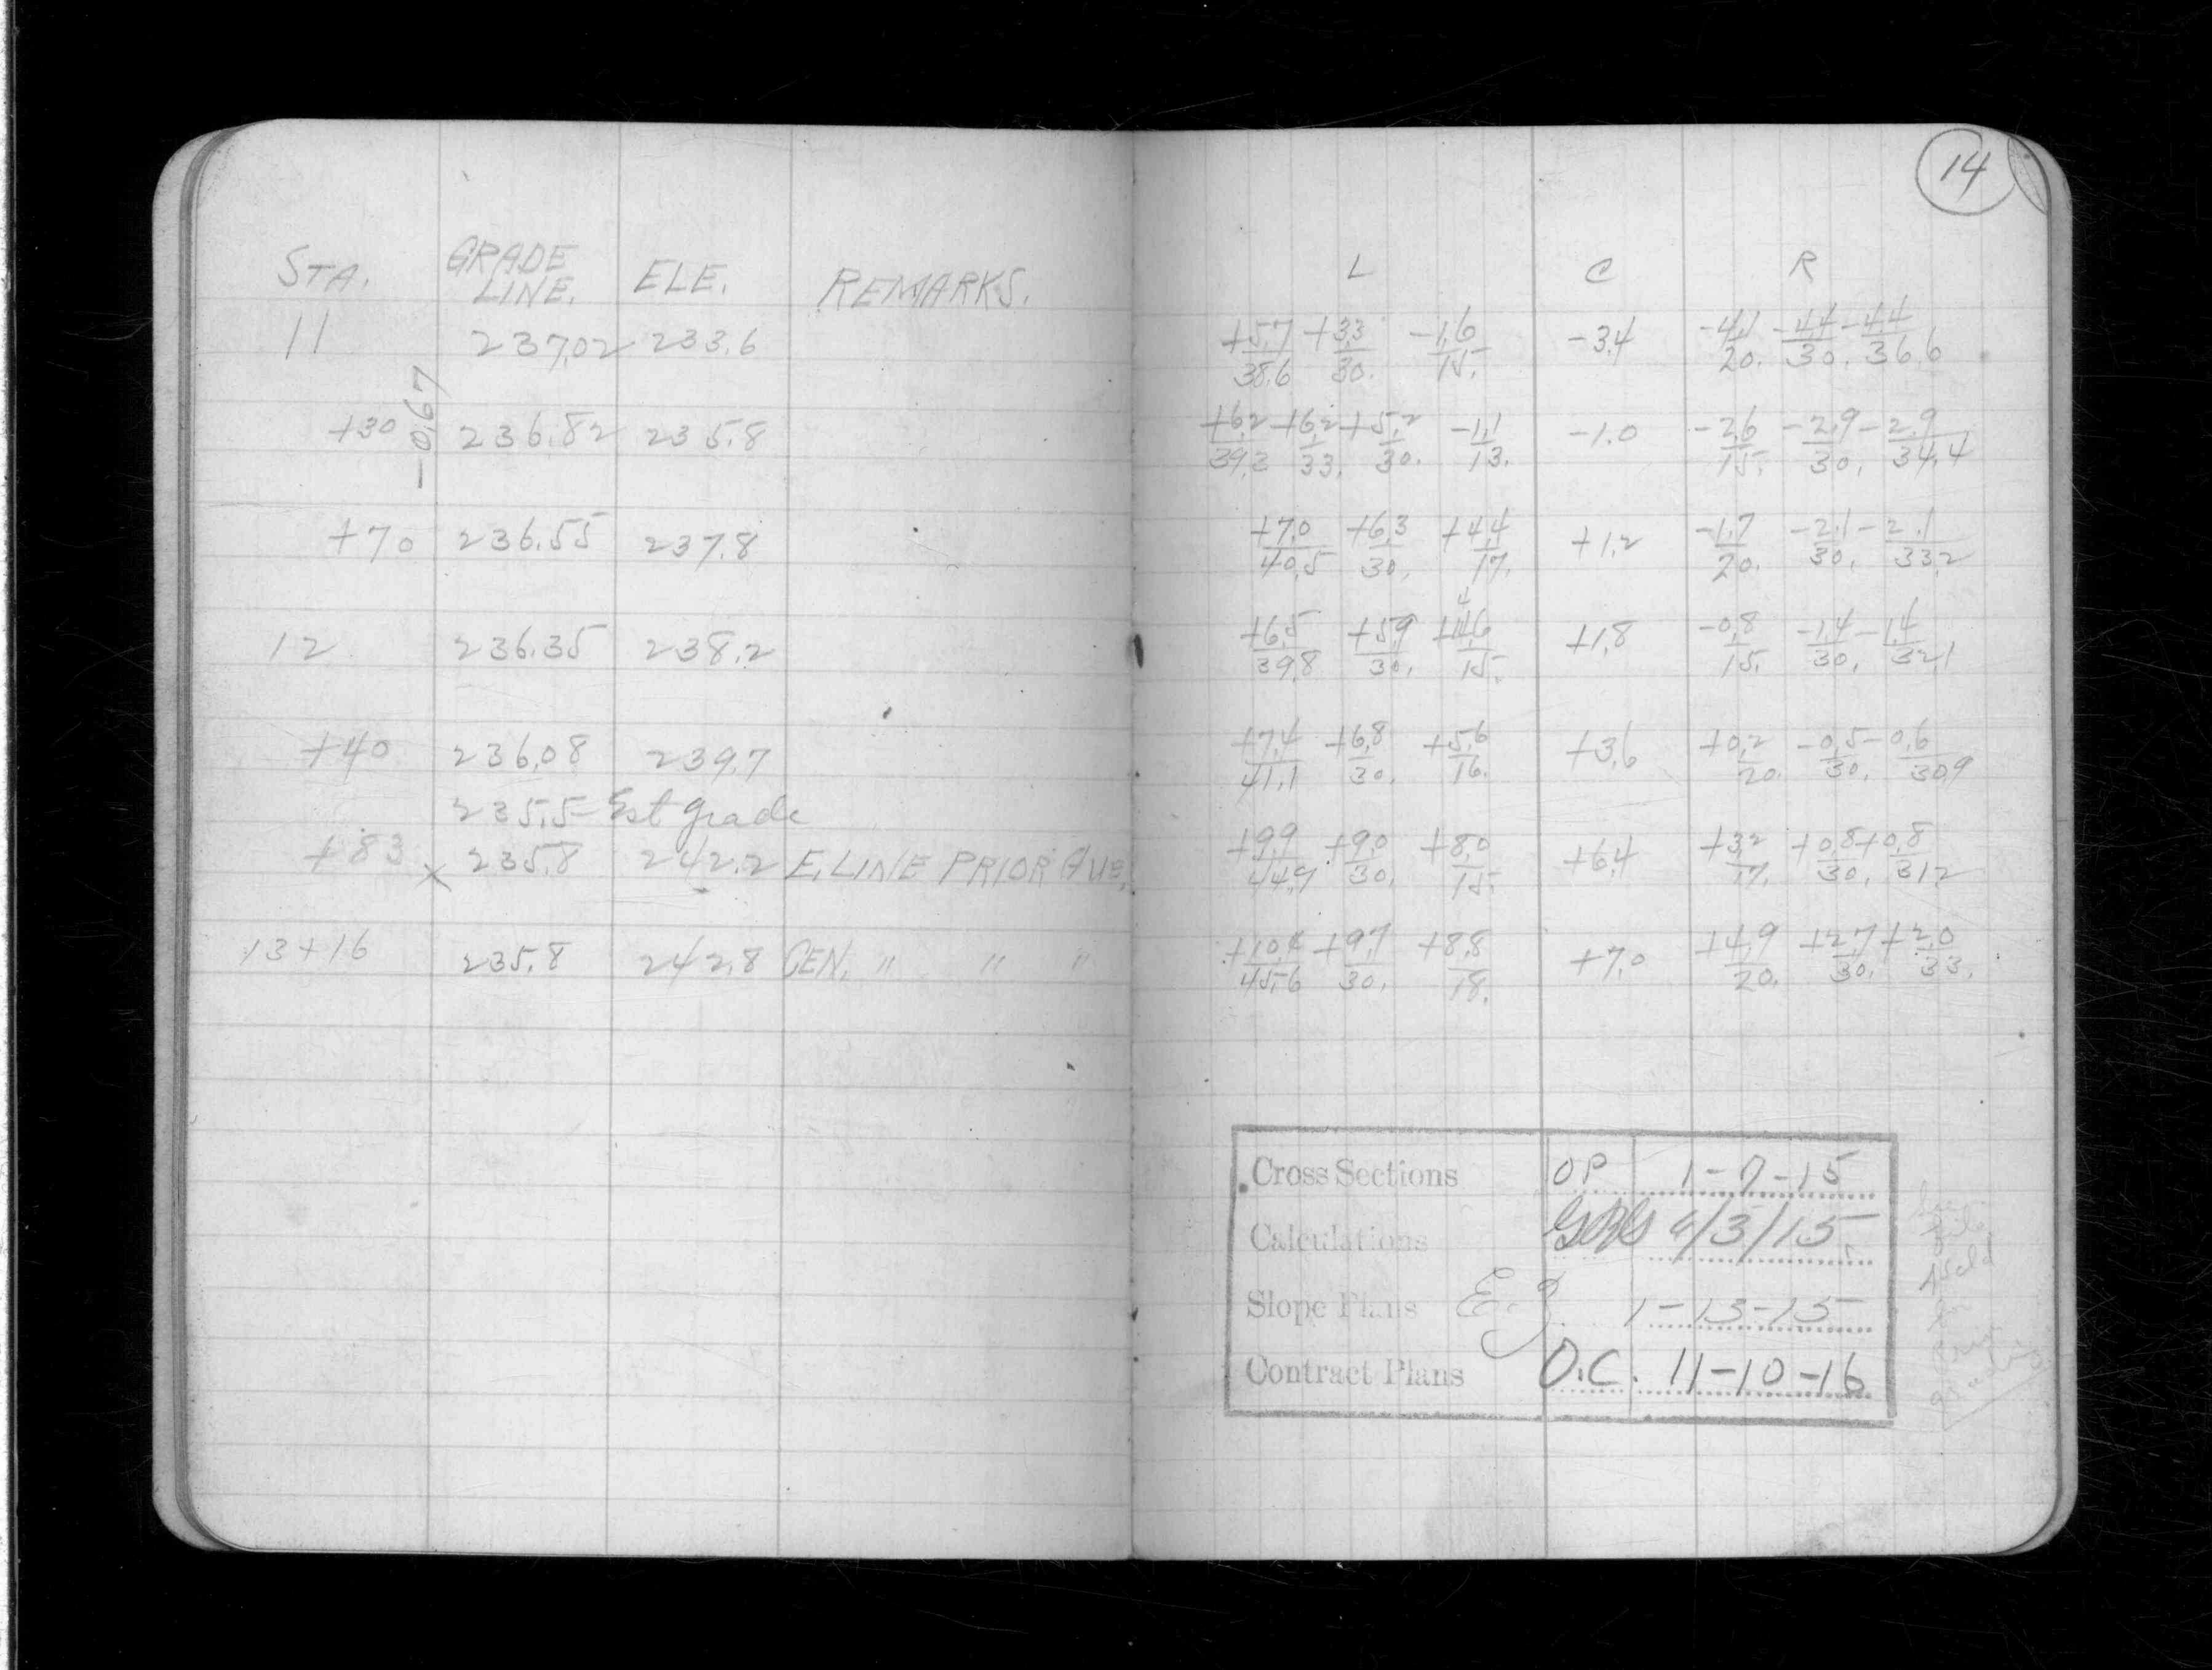 14
STA. GRADE LINE. ELE. REMARKS.
11 237.02 233.6
-0.67
+30 236.82 235.8
+70 236.55 237.8
12 236.35 238.2
+40 236.08 239.7
235.5 Est grade
+83 x 235.8 242.2 E. LINE PRIOR AVE.
13+16 235.8 242.8 CEN. " " "
L C R
+5.7/38.6 +3.3/30. -1.6/15. -3.4 -4.1/20. -4.4/30. -4.4/36.6
+6.2/39.3 +6.2/33. +5.2/30. -1.1/13. -1.0 -2.6/15. -2.9/30. -2.9/34.4
+7.0/40.5 +6.3/30. +4.4/17. +1.2 -1.7/20. -2.1/30. -2.1/33.2
+6.5/39.8 +5.9/30. +4.6/15. +1.8 -0.8/15. -1.4/30. -1.4/32.1
+7.4/41.1 +6.8/30. +5.6/16. +3.6 +0.2/20. -0.5/30. -0.6/30.9
+9.9/44.9 +9.0/30. +8.0/15. +6.4 +3.2/17. +0.8/30. +0.8/31.2
+10.4/45.6 +9.7/30. +8.8/18. +7.0 +4.9/20. +2.7/30. +2.0/33.
Cross Sections OP 1-7-15
Calculations 9/3/15
Slope Plans E.J. 1-13-15
Contract Plans O.C. 11-10-16